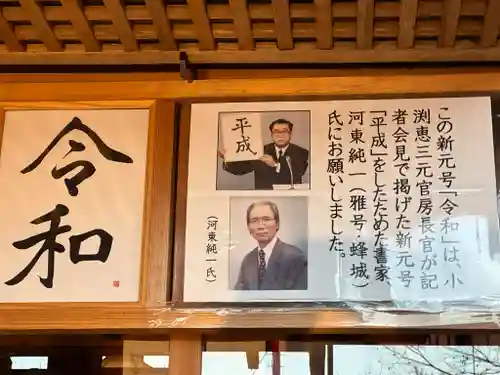 この新元号「令和」は、小
渕恵三元官房長官が記
者会見で掲げた新元号
「平成」をしたためた書家
河東純一(雅号・蜂城)
氏にお願いしました。
平成
(河東純一氏)
令和